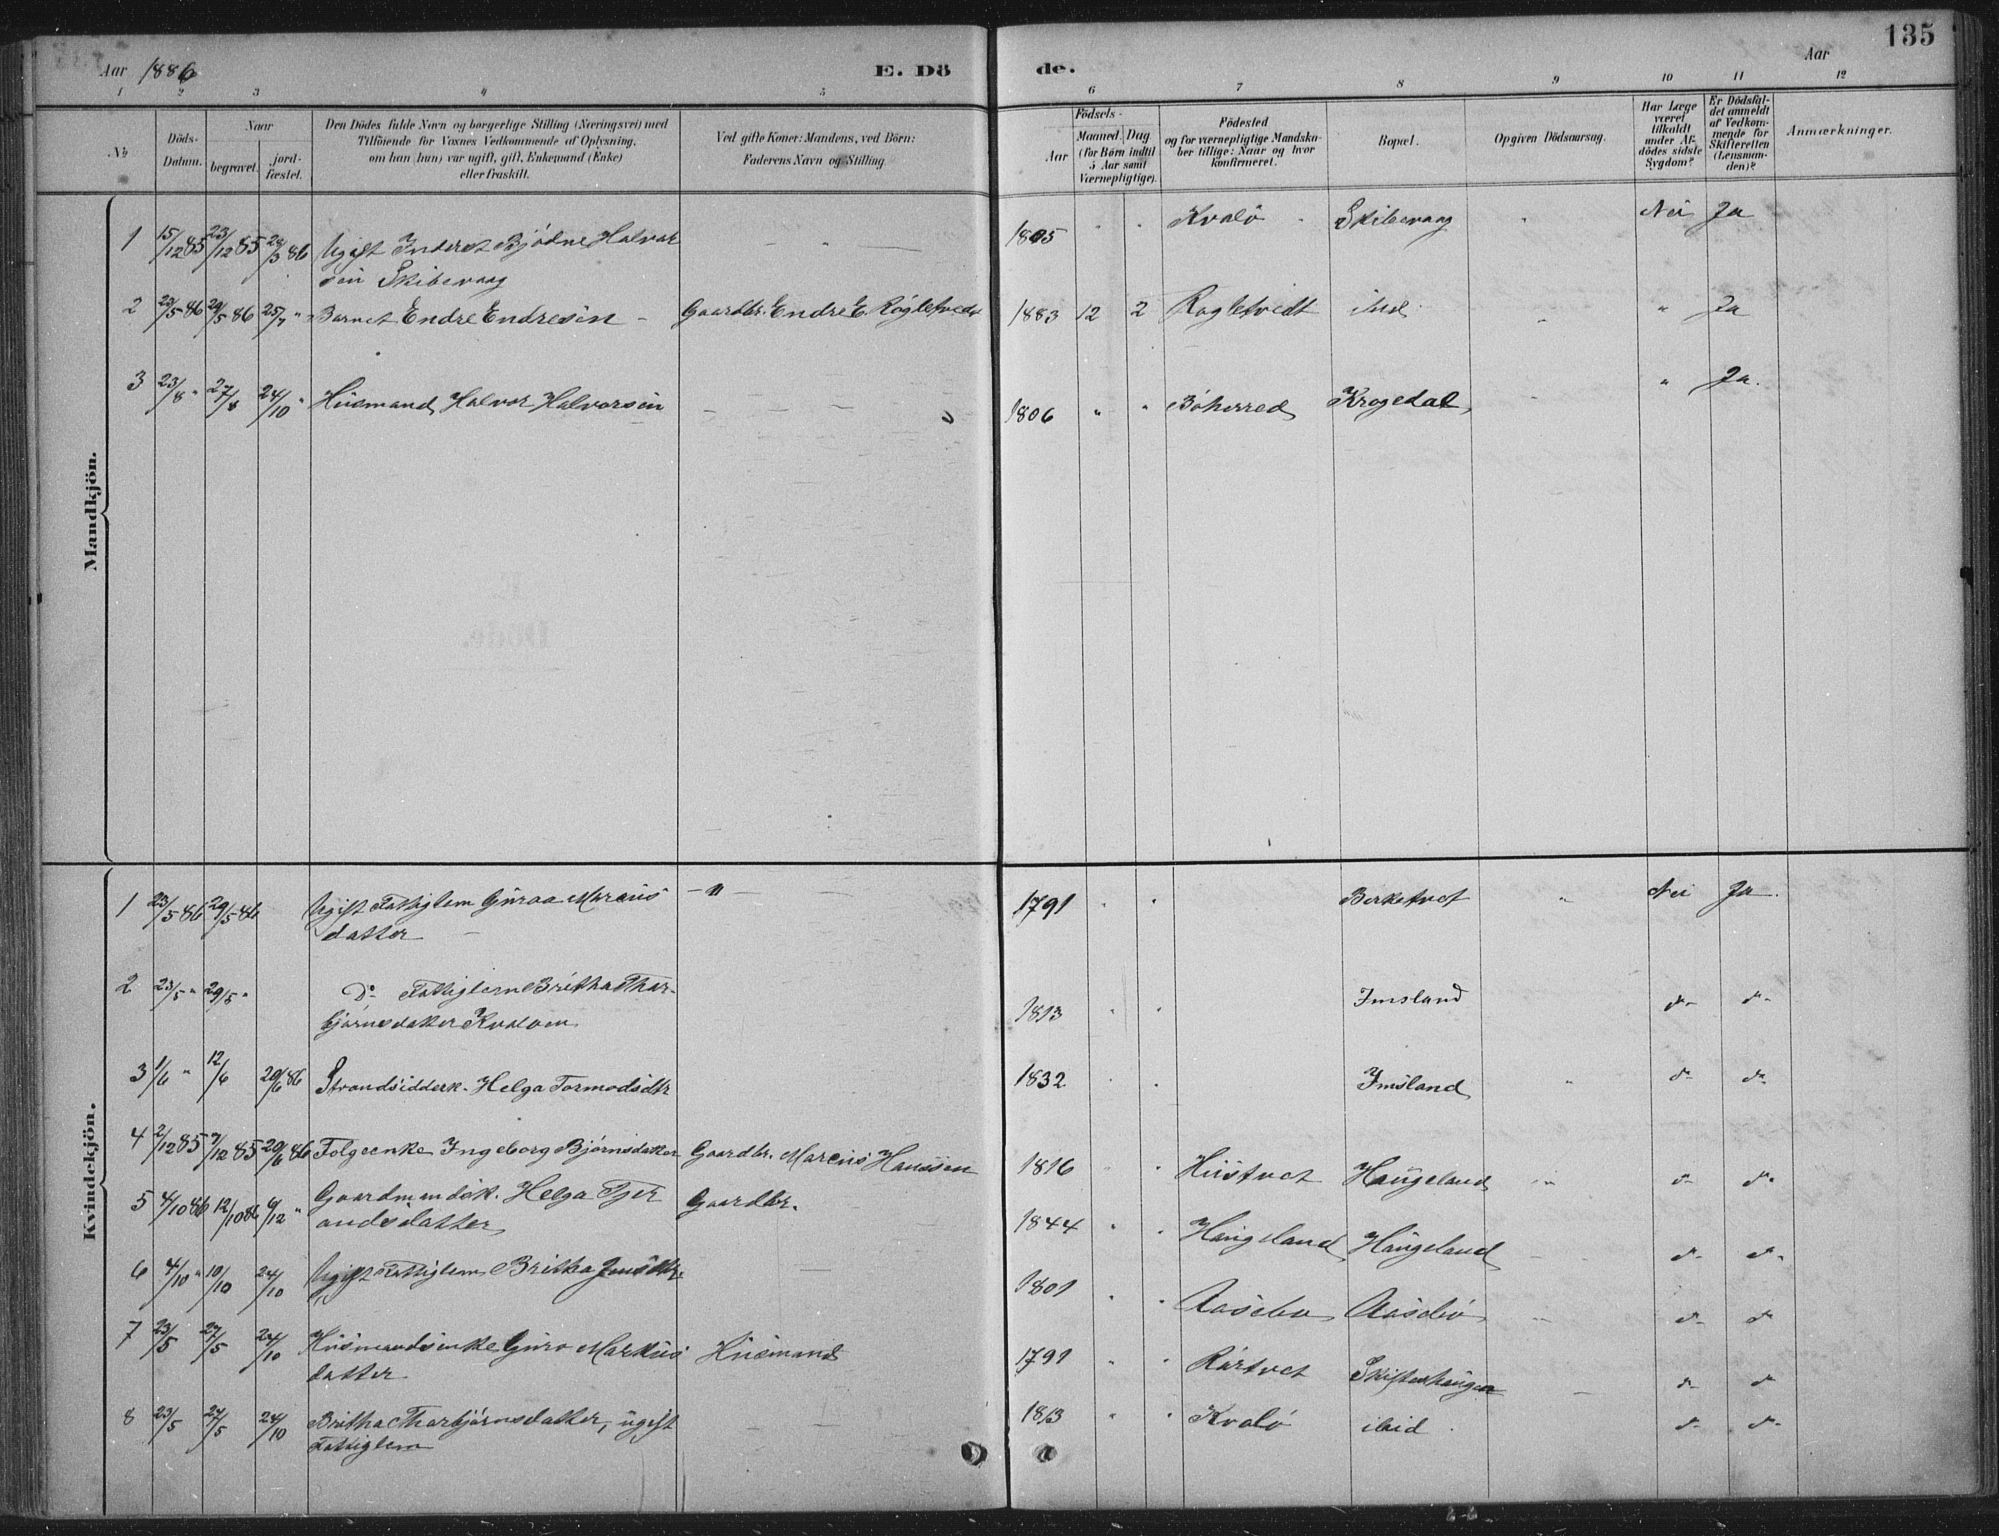 Aar 1886 E. Dö de. Aar 135
1 2 3 4 5 6 7 8 9 10 11 12
No Döds-Datum. Naar begravet. jordfæstet. Den Dödes fulde Navn og borgerlige Stilling (Næringsvei) med Tilföiende for Voxnes Vedkommende af Oplysning, om han (hun) var ugift, gift, Enkemand (Enke) eller fraskilt. Ved gifte Koner: Mandens, ved Börn: Faderens Navn og Stilling. Födsels- Aar Maaned Dag (for Börn indtil 5 Aar samt Værnepligtige). Födested og for værnepligtige Mandskaber tillige: Naar og hvor konfirmeret. Bopæl. Opgiven Dödsaarsag. Har Læge været tilkaldt under Afdödes sidste Sygdom? Er Dödsfaldet anmeldt af Vedkommende for Skifteretten (Lensmanden)? Anmærkninger.
Mandkjön.
1 15/12 85 23/12 85 28/3 86 Ugift Inderst Bjødne Halvor 1805 " " Kvalö Skibevaag " Nei Ja
sen Skibevaag
2 22/5 86 29/5 86 25/7 " Barnet Endre Endresen – Gaardbr. Endre E. Rogletvedt 1883 12 2 Rogletvedt ibid " " Ja
3 23/8 " 27/8 24/10 " Husmand Halvor Halvorsen 1806 " " Böherred Krogedal " Ja.
Kvindekjön.
1 23/5 86 29/5 86 Ugift Fattiglem Guroa Marcus – " – 1791 " " Berketvet " Nei Ja
datter
2 23/5 " 29/5 " Do Fattiglem Britha Thor- 1813 " " Imsland do do
bjørnsdatter Kvaloen
3 1/6 " 12/6 20/6 86 Strandsidderk. Helga Tormodsdtr 1832 " " Imsland " do do
4 2/12 85 7/12 85 20/6 86 Folgeenke Ingeborg Bjørnsdatter Gaardbr. Marcus Hanssen 1816 " " Hustvet Haugeland " do do
5 4/10 86 12/10 86 6/12 " Gaardmandsk. Helga Tjer Gaardbr. 1844 " " Haugeland Haugeland do do
andsdatter
6 4/10 " 10/10 24/10 Ugift Fattiglem Britha Jensdtr. 1801 " " Aasebo Aasebö do do
7 23/5 27/5 24/10 Husmandsenke Guro Markus Husmand 1791 " " Rörtvet Skiftenhaugen do do
datter
8 23/5 27/5 24/10 Britha Thorbjørnsdatter, ugift 1813 " " Kvalö ibid do do
Fattiglem